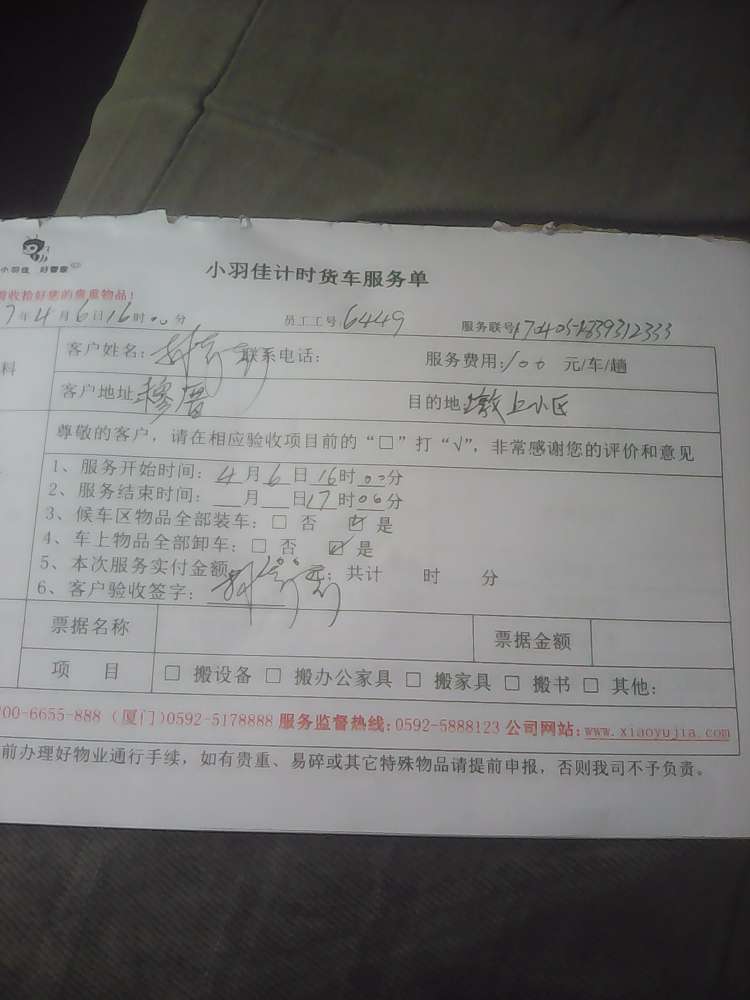 小羽佳 好管家
小羽佳计时货车服务单
收拾好您的贵重物品!
7年4月6日16时00分 员工工号:6449 服务联号:170405-1839312333
料
客户姓名: 联系电话: 服务费用:100 元/车/趟
客户地址:穆厝 目的地:墩上小区
尊敬的客户,请在相应验收项目前的“□”打“√”,非常感谢您的评价和意见
1、服务开始时间:4月6日16时00分
2、服务结束时间:__月__日17时00分
3、候车区物品全部装车:□ 否 ☑ 是
4、车上物品全部卸车:□ 否 ☑ 是
5、本次服务实付金额 元;共计 时 分
6、客户验收签字:
票据名称 票据金额
项 目 □ 搬设备 □ 搬办公家具 □ 搬家具 □ 搬书 □ 其他:
00-6655-888 (厦门)0592-5178888 服务监督热线:0592-5888123 公司网站:www.xiaoyujia.com
前办理好物业通行手续,如有贵重、易碎或其它特殊物品请提前申报,否则我司不予负责。